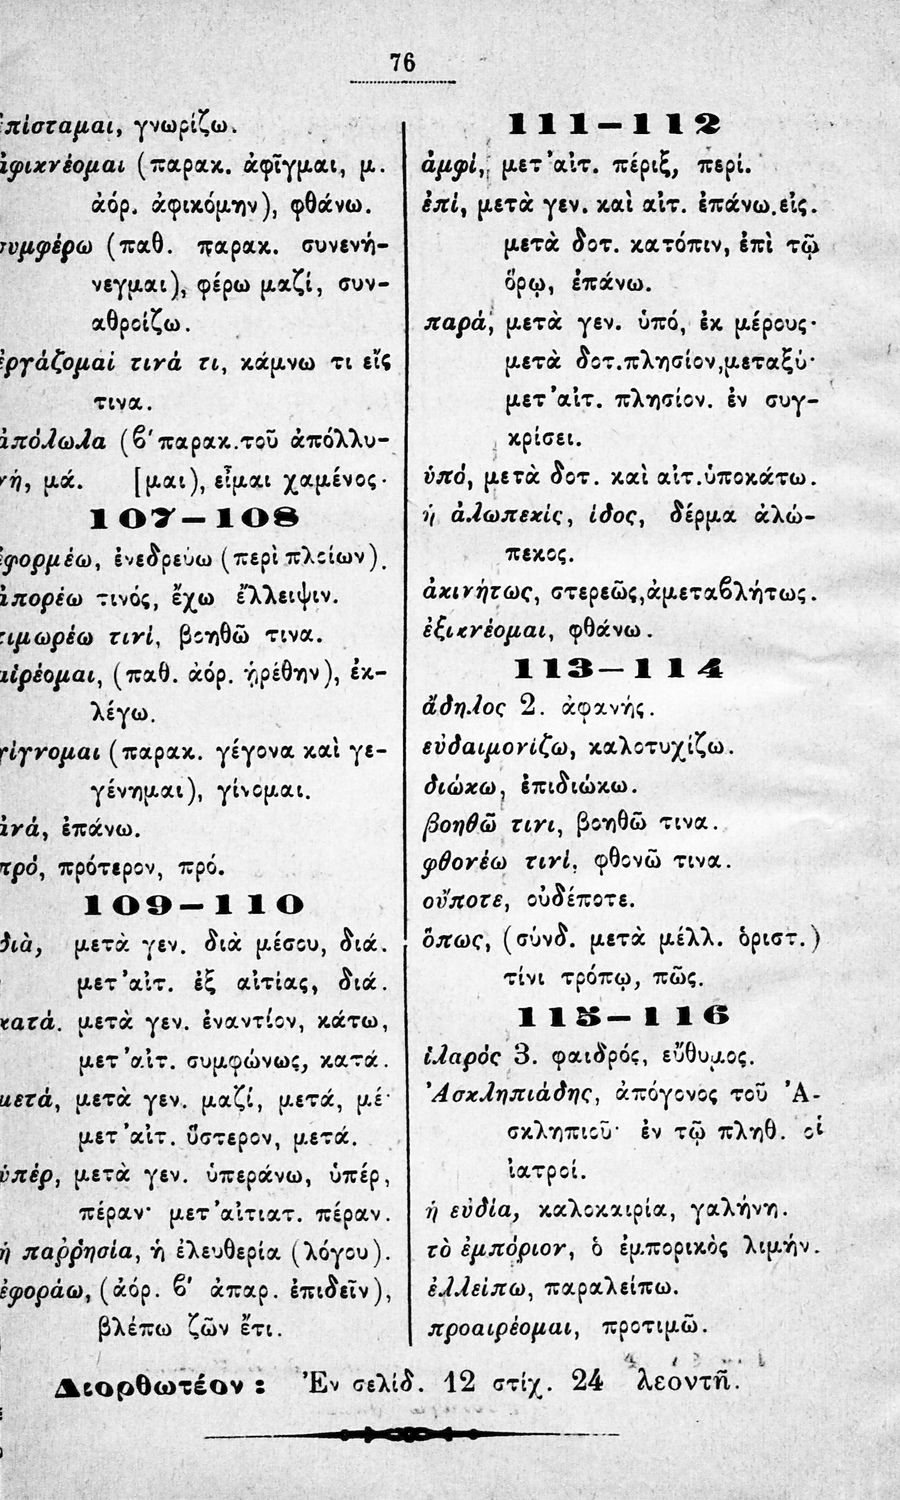 76
ἐπίσταμαι, γνωρίζω.
ἀφικνέομαι (παρακ. ἀφῖγμαι, μ.
ἀόρ. ἀφικόμην), φθάνω.
συμφέρω (παθ. παρακ. συνενή-
νεγμαι), φέρω μαζί, συν-
αθροίζω.
ἐργάζομαί τινά τι, κάμνω τι εἴς
τινα.
ἀπόλωλα (β′ παρακ. τοῦ ἀπόλλυ-
νή, μά. [μαι), εἶμαι χαμένος·
107–108
ἐφορμέω, ἐνεδρεύω (περὶ πλοίων).
ἀπορέω τινός, ἔχω ἔλλειψιν.
τιμωρέω τινί, βοηθῶ τινα.
αἱρέομαι, (παθ. ἀόρ. ᾑρέθην), ἐκ-
λέγω.
γίγνομαι (παρακ. γέγονα καὶ γε-
γένημαι), γίνομαι.
ἀνά, ἐπάνω.
πρό, πρότερον, πρό.
109–110
διὰ, μετὰ γεν. διὰ μέσου, διά.
μετ’ αἰτ. ἐξ αἰτίας, διά.
κατά. μετὰ γεν. ἐναντίον, κάτω,
μετ’ αἰτ. συμφώνως, κατά.
μετά, μετὰ γεν. μαζί, μετά, μέ·
μετ’ αἰτ. ὕστερον, μετά.
ὑπέρ, μετὰ γεν. ὑπεράνω, ὑπέρ,
πέραν· μετ’ αἰτιατ. πέραν.
ἡ παῤῥησία, ἡ ἐλευθερία (λόγου).
ἐφοράω, (ἀόρ. β′ ἀπαρ. ἐπιδεῖν),
βλέπω ζῶν ἔτι.
111–112
ἀμφί, μετ’ αἰτ. πέριξ, περί.
ἐπί, μετὰ γεν. καὶ αἰτ. ἐπάνω. εἰς.
μετὰ δοτ. κατόπιν, ἐπὶ τῷ
ὅρῳ, ἐπάνω.
παρά, μετὰ γεν. ὑπό, ἐκ μέρους·
μετὰ δοτ. πλησίον, μεταξύ·
μετ’ αἰτ. πλησίον. ἐν συγ-
κρίσει.
ὑπό, μετὰ δοτ. καὶ αἰτ. ὑποκάτω.
ἡ ἀλωπεκίς, ίδος, δέρμα ἀλώ-
πεκος.
ἀκινήτως, στερεῶς, ἀμεταβλήτως.
ἐξικνέομαι, φθάνω.
113–114
ἄδηλος 2. ἀφανής.
εὐδαιμονίζω, καλοτυχίζω.
διώκω, ἐπιδιώκω.
βοηθῶ τινι, βοηθῶ τινα.
φθονέω τινί, φθονῶ τινα.
οὔποτε, οὐδέποτε.
ὅπως, (σύνδ. μετὰ μέλλ. ὁριστ.)
τίνι τρόπῳ, πῶς.
115–116
ἱλαρός 3. φαιδρός, εὔθυμος.
Ἀσκληπιάδης, ἀπόγονος τοῦ Ἀ-
σκληπιοῦ· ἐν τῷ πληθ. οἱ
ἰατροί.
ἡ εὐδία, καλοκαιρία, γαλήνη.
τὸ ἐμπόριον, ὁ ἐμπορικὸς λιμήν.
ἐλλείπω, παραλείπω.
προαιρέομαι, προτιμῶ.
Διορθωτέον: Ἐν σελίδ. 12 στίχ. 24 λεοντῆ.